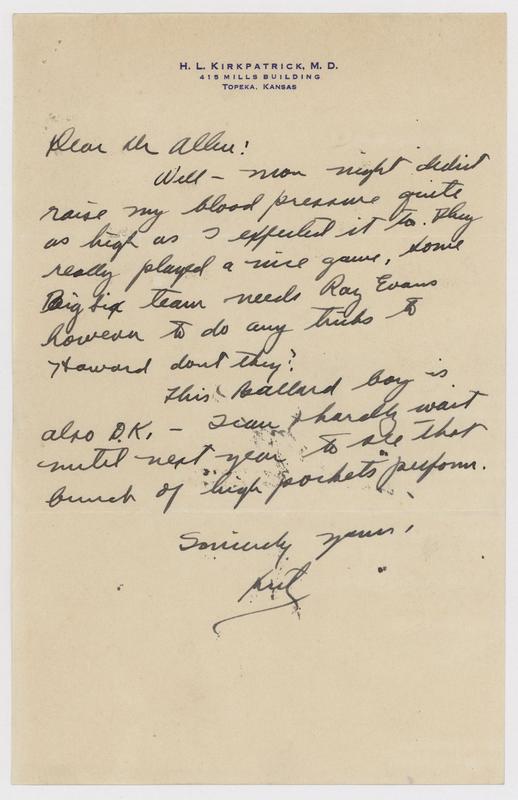 H. L. KIRKPATRICK, M. D.
415 MILLS BUILDING
TOPEKA, KANSAS
Dear Dr Allen:
Well – mon night didn't
raise my blood pressure quite
as high as I expected it to. They
really played a nice game, some
Big Six team needs Ray Evans
however to do any tricks to
Howard dont they?
This Ballard boy is
also O.K. – I can hardly wait
until next year to see that
bunch of "high pockets" perform.
Sincerely yours,